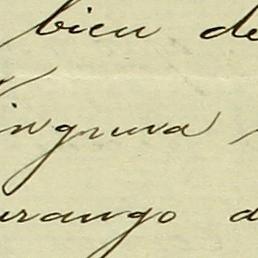 bien de
ingruva
urango d